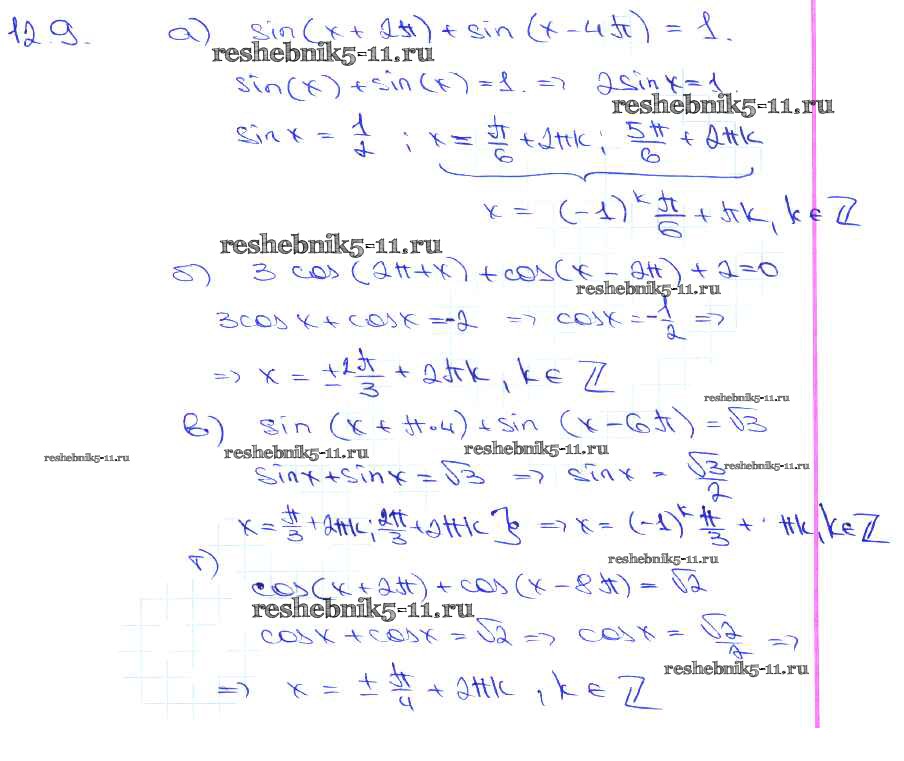 12.9. а) sin(x + 2π) + sin(x - 4π) = 1.
reshebnik5-11.ru
sin(x) + sin(x) = 1. => 2sinx = 1.
reshebnik5-11.ru
sinx = 1/2 ; x = π/6 + 2πk; 5π/6 + 2πk
x = (-1)^k π/6 + πk, k ∈ ℤ
reshebnik5-11.ru
б) 3 cos(2π+x) + cos(x - 2π) + 2 = 0
reshebnik5-11.ru
3cosx + cosx = -2 => cosx = -1/2 =>
=> x = ± 2π/3 + 2πk, k ∈ ℤ
reshebnik5-11.ru
в) sin (x + π·4) + sin (x - 6π) = √3
reshebnik5-11.ru reshebnik5-11.ru reshebnik5-11.ru
sinx + sinx = √3 => sinx = √3/2
reshebnik5-11.ru
x = π/3 + 2πk; 2π/3 + 2πk } => x = (-1)^k π/3 + πk, k ∈ ℤ
reshebnik5-11.ru
г) cos(x + 2π) + cos(x - 8π) = √2
reshebnik5-11.ru
cosx + cosx = √2 => cosx = √2/2 =>
reshebnik5-11.ru
=> x = ± π/4 + 2πk, k ∈ ℤ